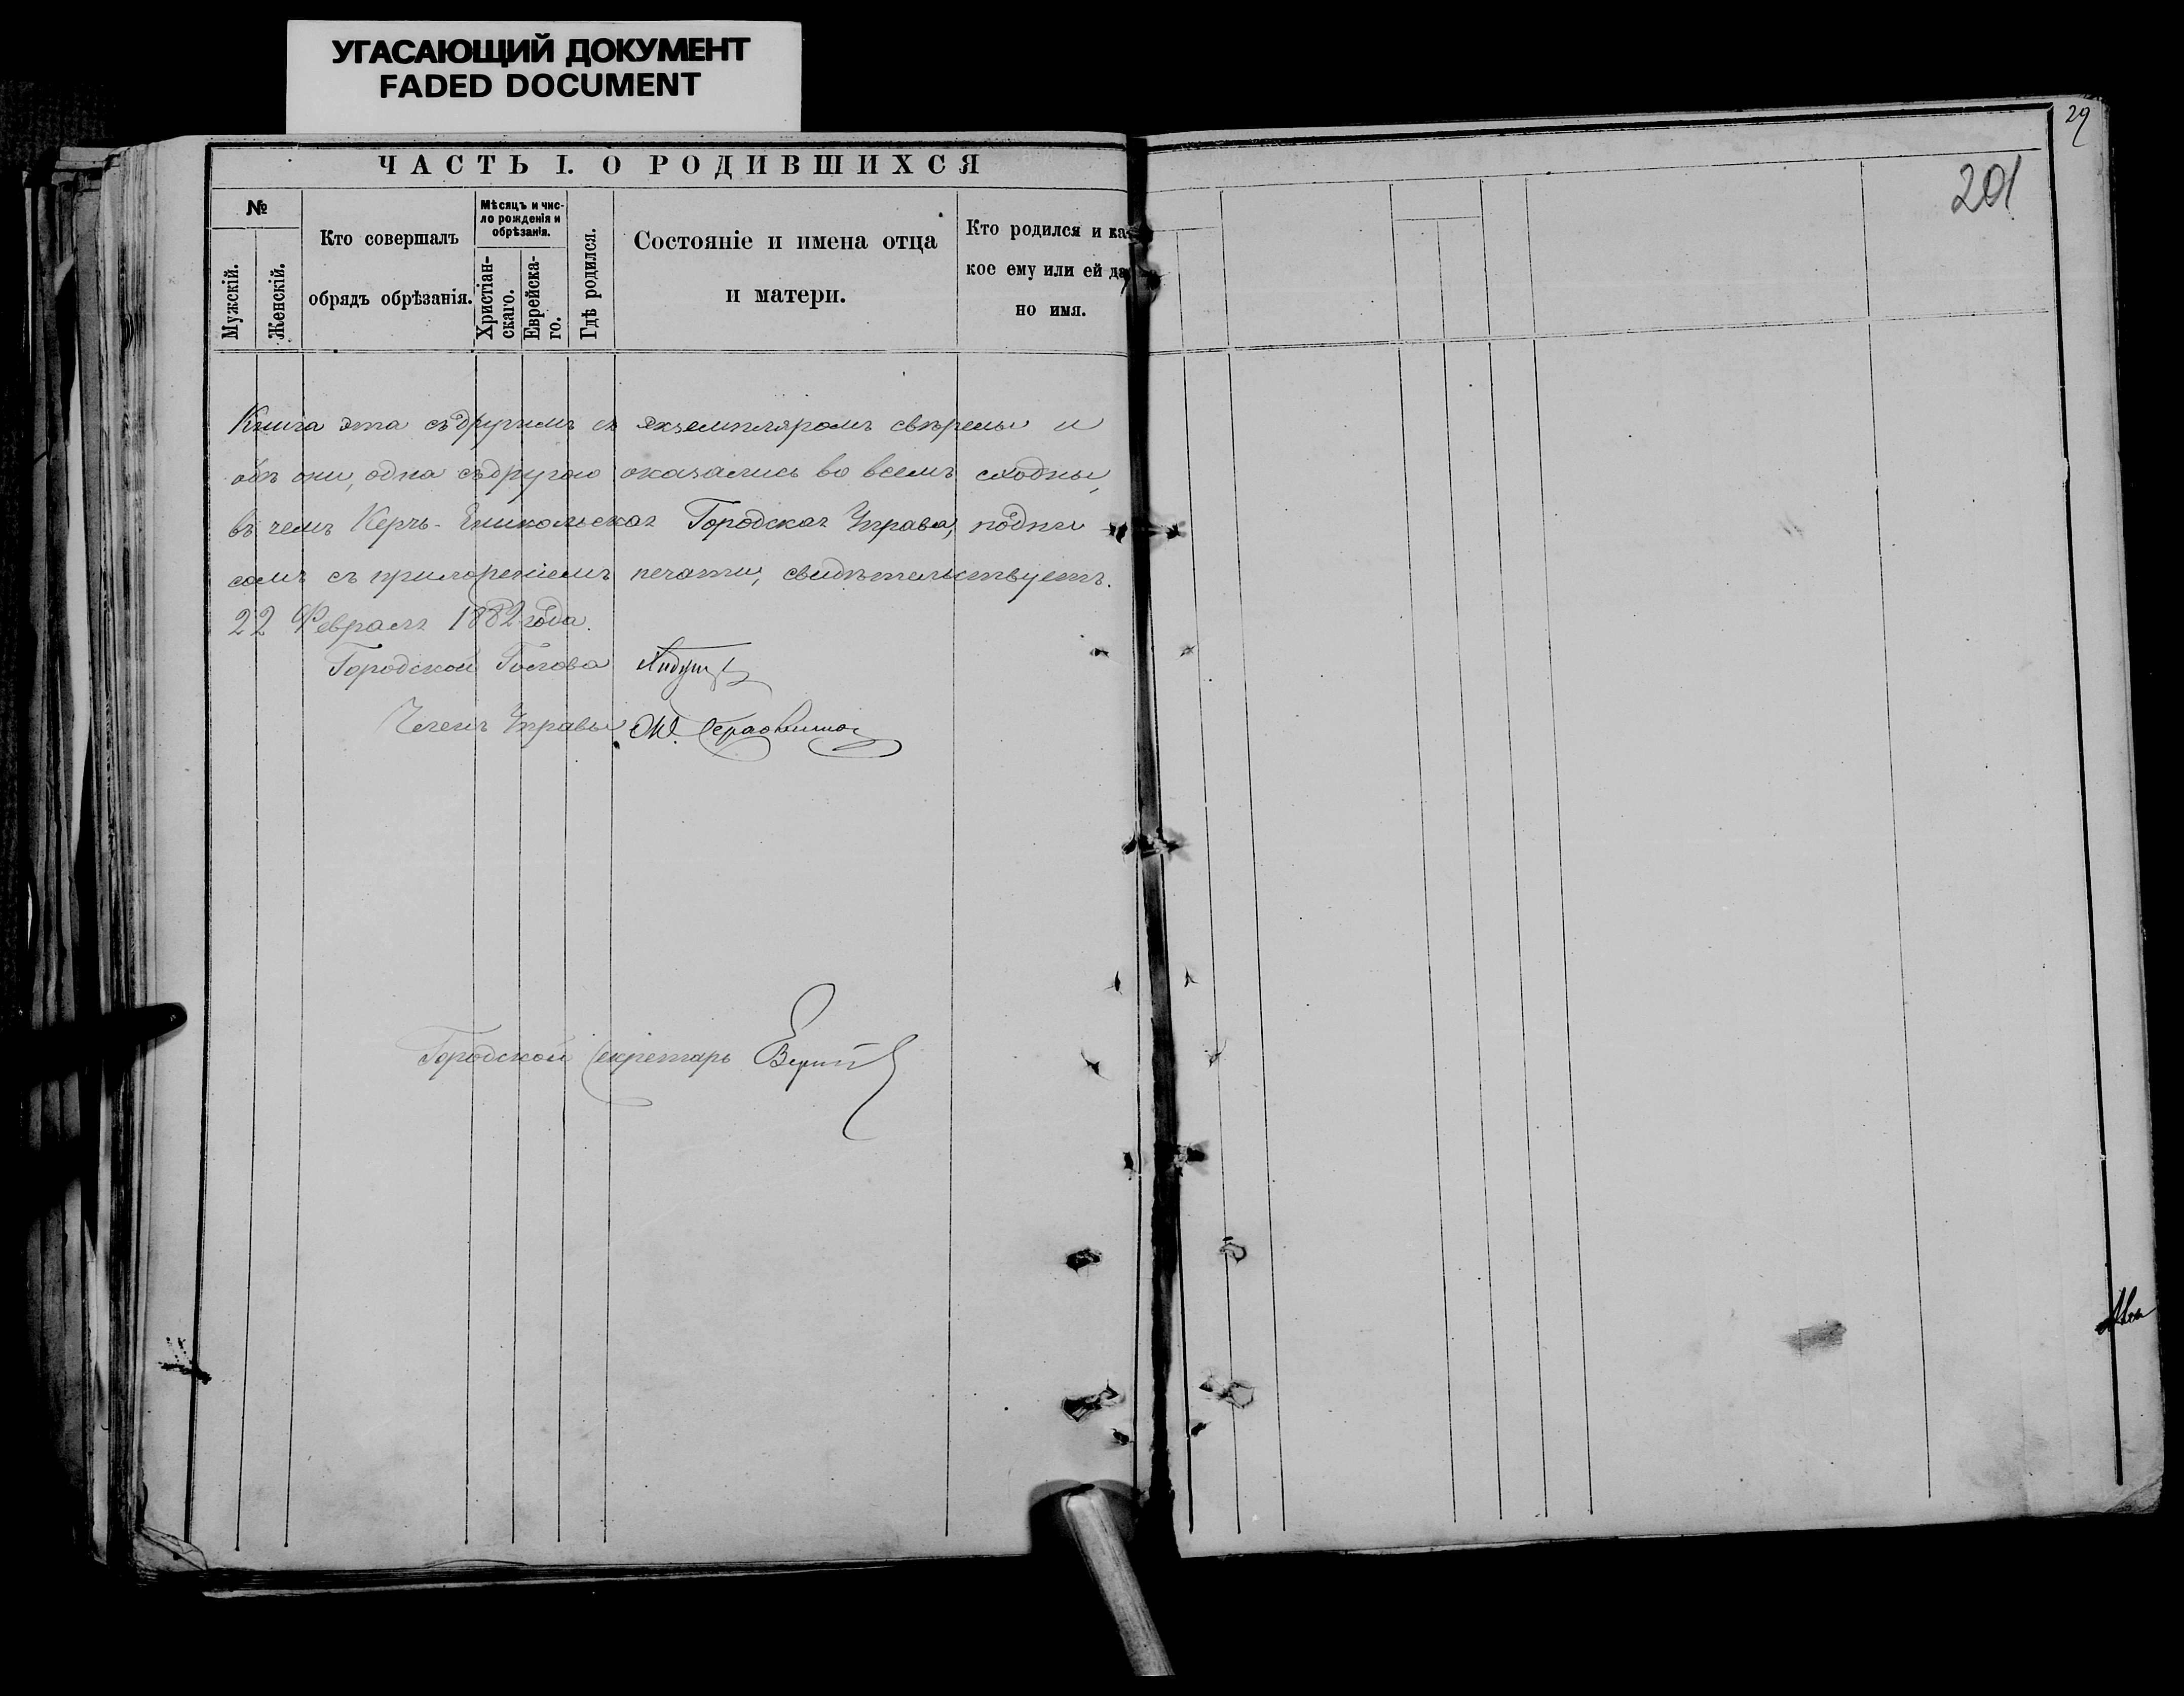 УГАСАЮЩИЙ ДОКУМЕНТ
FADED DOCUMENT
29
201
ЧАСТЬ I. О РОДИВШИХСЯ
№
Мужскій.
Женскій.
Кто совершалъ
обрядъ обрѣзанія.
Мѣсяцъ и чис-
ло рожденія и
обрѣзанія.
Христіан-
скаго.
Еврейска-
го.
Гдѣ родился.
Состояніе и имена отца
и матери.
Кто родился и ка-
кое ему или ей да
но имя.
Книга эта съ другимъ экземпляромъ свѣрены и
обѣ они, одна съ другою оказались во всемъ сходны,
въ чемъ Керчь-Еникольская Городская Управа, подпи
сомъ съ приложеніемъ печати, свидѣтельствуетъ.
22 Февраля 1882 года.
Городской Голова
Членъ Управы
Городской Секретарь